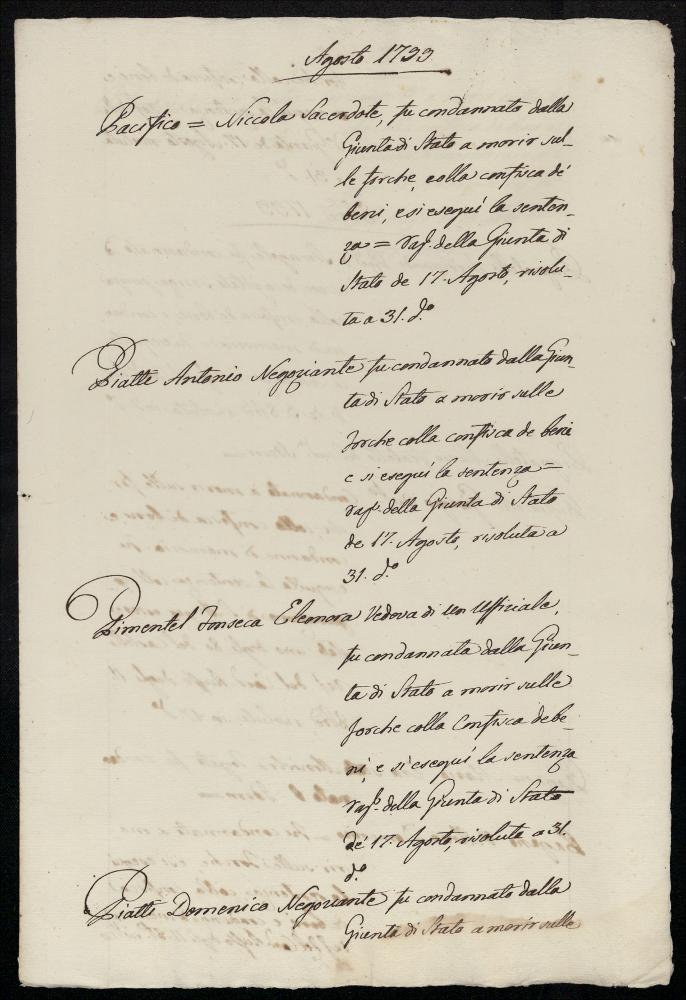 Agosto 1799
Pacifico = Niccola Sacerdote, fu condannato dalla
Giunta di Stato a morir sul-
le forche, colla confisca dé
beni, e si eseguì la senten-
za = rapp. della Giunta di
Stato de 17. Agosto, risolu-
ta a 31. d.o
Piatti Antonio Negoziante fu condannato dalla Giun-
ta di Stato a morir sulle
forche colla confisca de beni
e si eseguì la sentenza =
rapp. della Giunta di Stato
de 17. Agosto, risoluta a
31. d.o
Pimentel Fonseca Eleonora Vedova di un Uffiziale,
fu condannata dalla Giun-
ta di Stato a morir sulle
forche colla Confisca de be-
ni, e si eseguì la sentenza
rapp. della Giunta di Stato
dé 17. Agosto, risoluta a 31.
d.o
Piatti Domenico Negoziante fu condannato dalla
Giunta di Stato a morir sulle